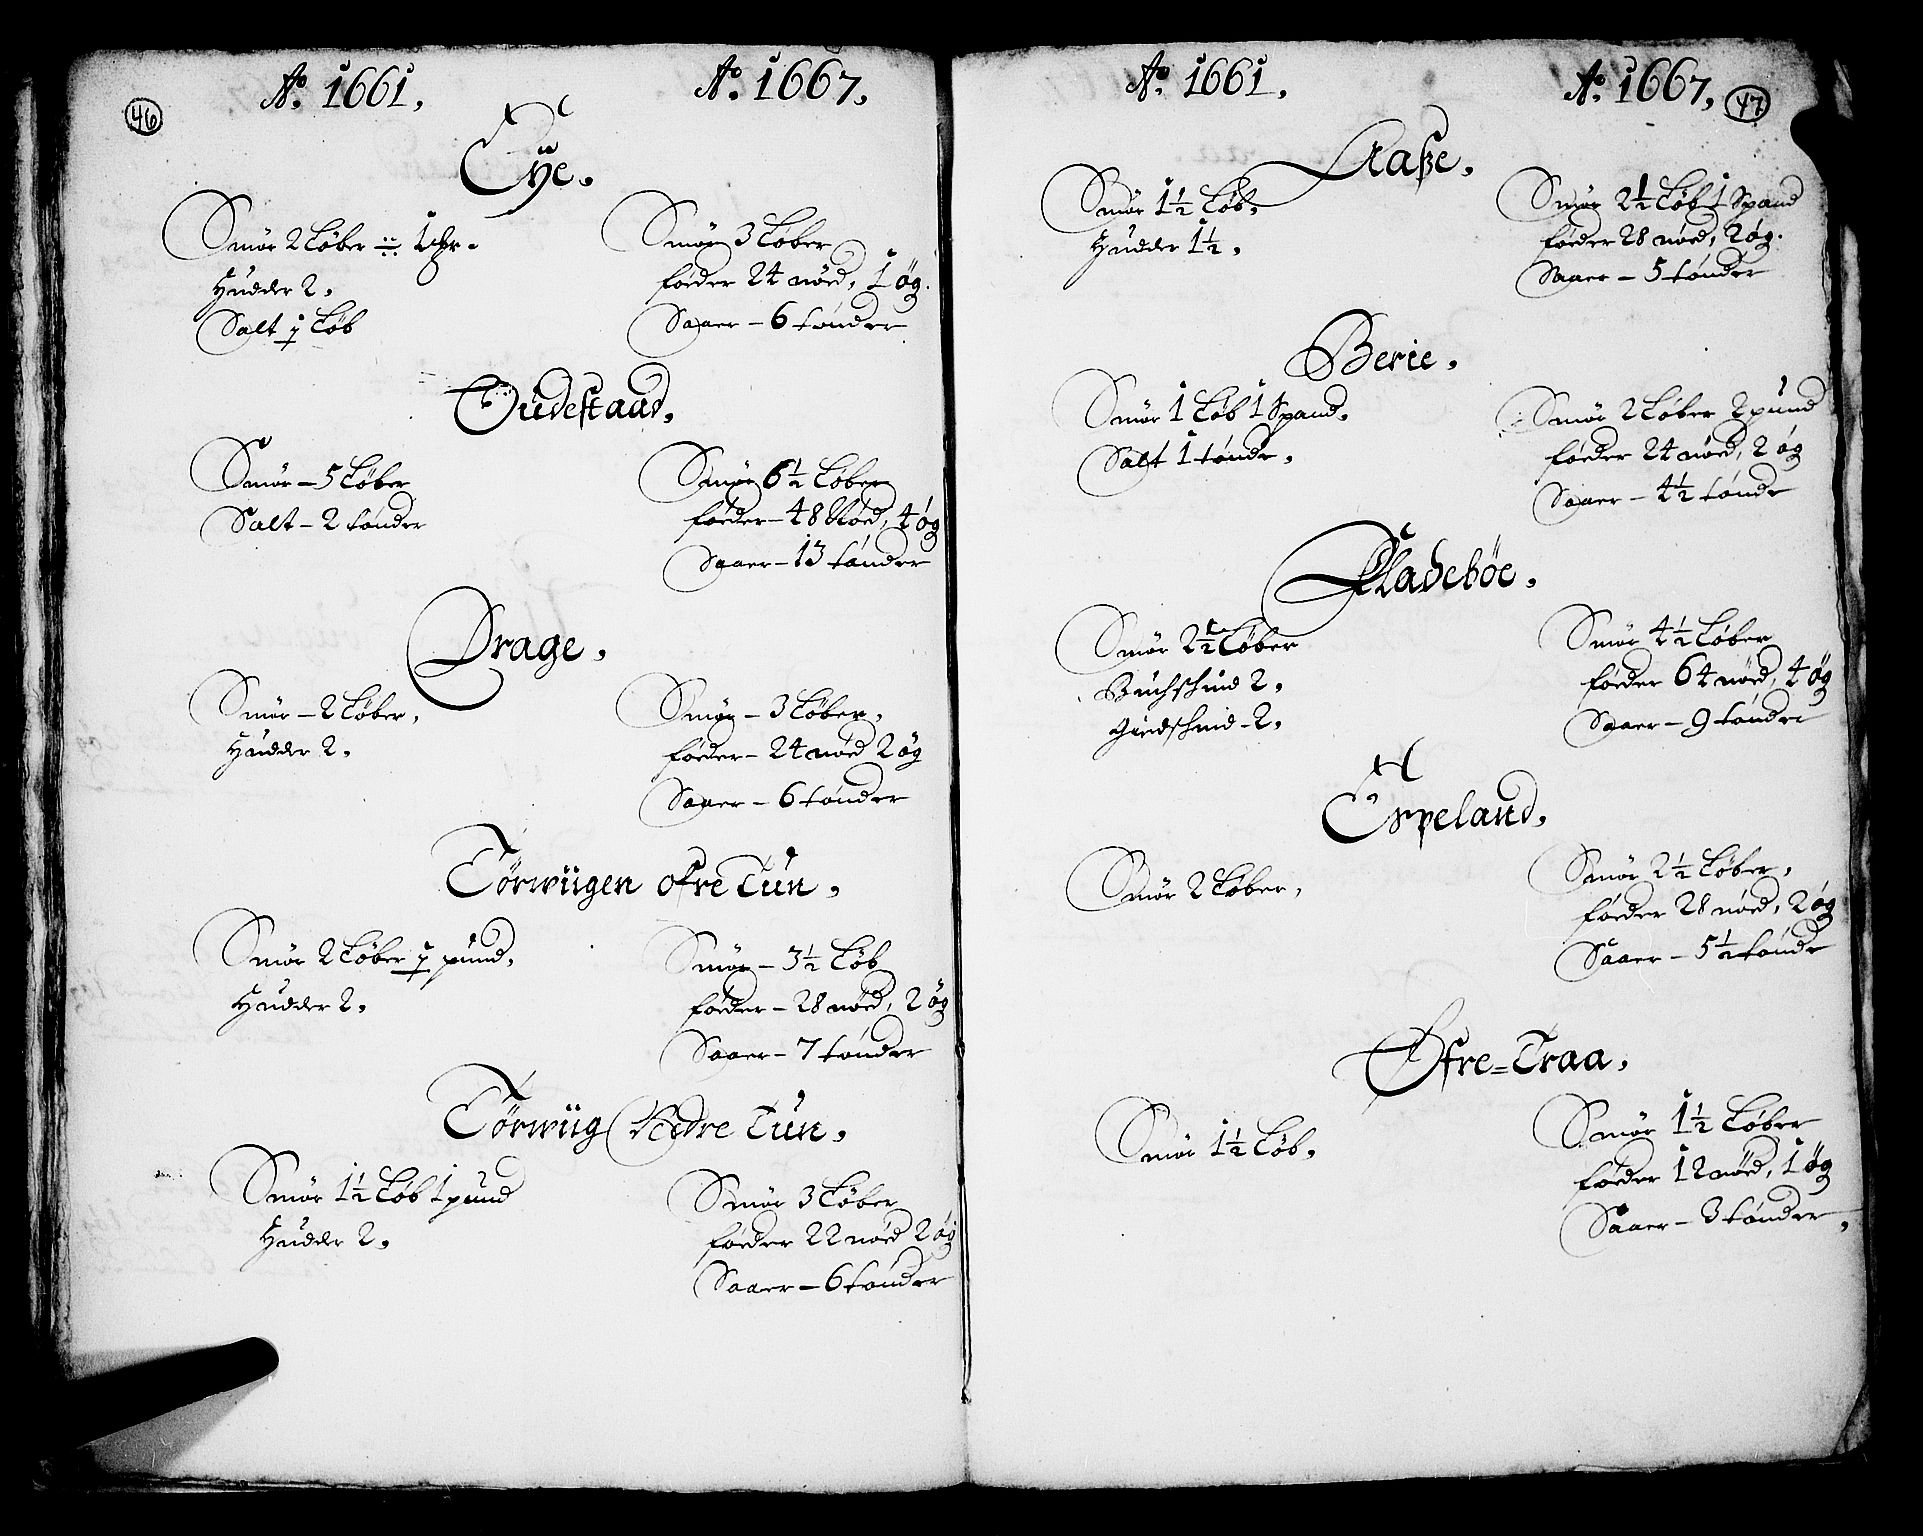 46
Ao. 1661.
Ao. 1667.
Eÿe.
Smör 2 Löber ÷ 1 
Huder 2.
Salt 1 Löb
Smör 3 Löber
föeder 24 nöed, 1 øg.
Saaer – 6 tönder
Gudestaad.
Smör – 5 Löber
Salt – 2 tönder
Smör 6½ Löber
föeder – 48 Nöed, 4 øg
Saaer – 13 tönder
Drage.
Smör – 2 Löber.
Huder 2.
Smör – 3 Löber.
föeder – 24 nöed 2 øg
Saaer – 6 tönder
Törwiigen ofre Tun.
Smör 2 Löber 1 pund.
Huder 2.
Smör – 3½ Löb
föeder – 28 nöed, 2 øg
Saaer – 7 tönder
Törwiig Nedre Tun.
Smör 1½ Löb 1 pund
Huder 2.
Smör 3 Löber
föeder 22 nöed 2 øg
Saaer – 6 tönder
Ao. 1661.
Ao. 1667.
47
Aaße.
Smör 1½ Löb.
Hudder 1½.
Smör 2½ Löb 1 Spand
föeder 28 nöed, 2 øg.
Saaer – 5 tönder
Berie.
Smör 1 Löb 1 Spand.
Salt 1 tönde.
Smör 2 Löber 2 pund
föeder 24 nöed, 2 øg
Saaer – 4½ tönde
Fladebøe.
Smör 2½ Löber
Buchskind 2.
Giedskind – 2.
Smör 4½ Löber
föeder 64 nöed, 4 øg
Saaer – 9 tönder
Espeland.
Smör 2 Löber.
Smör 2½ Löber.
föeder 28 nöed, 2 øg
Saaer – 5½ tönde
Øfre = Traa.
Smör 1½ Löb.
Smör 1½ Löber
föeder 12 nöed, 1 øg
Saaer – 3 tönder.